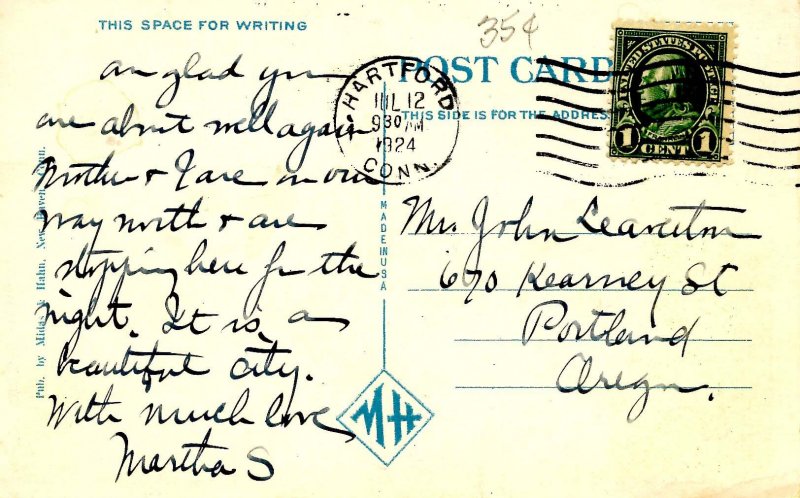 THIS SPACE FOR WRITING
am glad you
are about well again
Mother & I are on our
way north & are
stopping here for the
night. It is a
beautiful city.
With much love
Martha S
Pub. by Midas & Hahn, New Haven, Conn.
MADE IN USA
MH
35¢
POST CARD
THIS SIDE IS FOR THE ADDRESS
HARTFORD
JUL 12
930 AM
1924
CONN.
UNITED STATES POSTAGE
1 CENT 1
Mr. John Leaverton
690 Kearney St
Portland
Oregon.